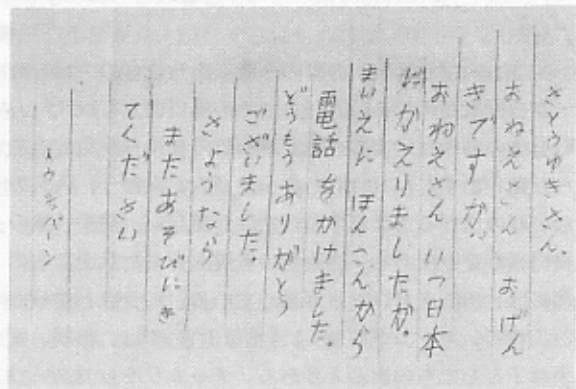 さとうゆきさん。
おねえさん おげん
きですか。
おねえさん いつ日本
がかえりましたか。
まいえに ほんこんから
電話をかけました。
どうもうありがとう
ございました。
さようなら
またあそびにき
てください
トウラバーン